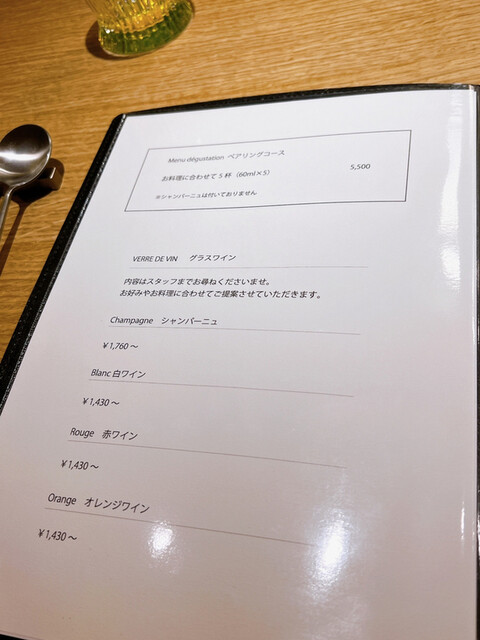 Menu dégustation ペアリングコース
お料理に合わせて 5 杯（60ml×5） 5,500
※シャンパーニュは付いておりません
VERRE DE VIN グラスワイン
内容はスタッフまでお尋ねくださいませ。
お好みやお料理に合わせてご提案させていただきます。
Champagne シャンパーニュ
￥1,760～
Blanc 白ワイン
￥1,430～
Rouge 赤ワイン
￥1,430～
Orange オレンジワイン
￥1,430～